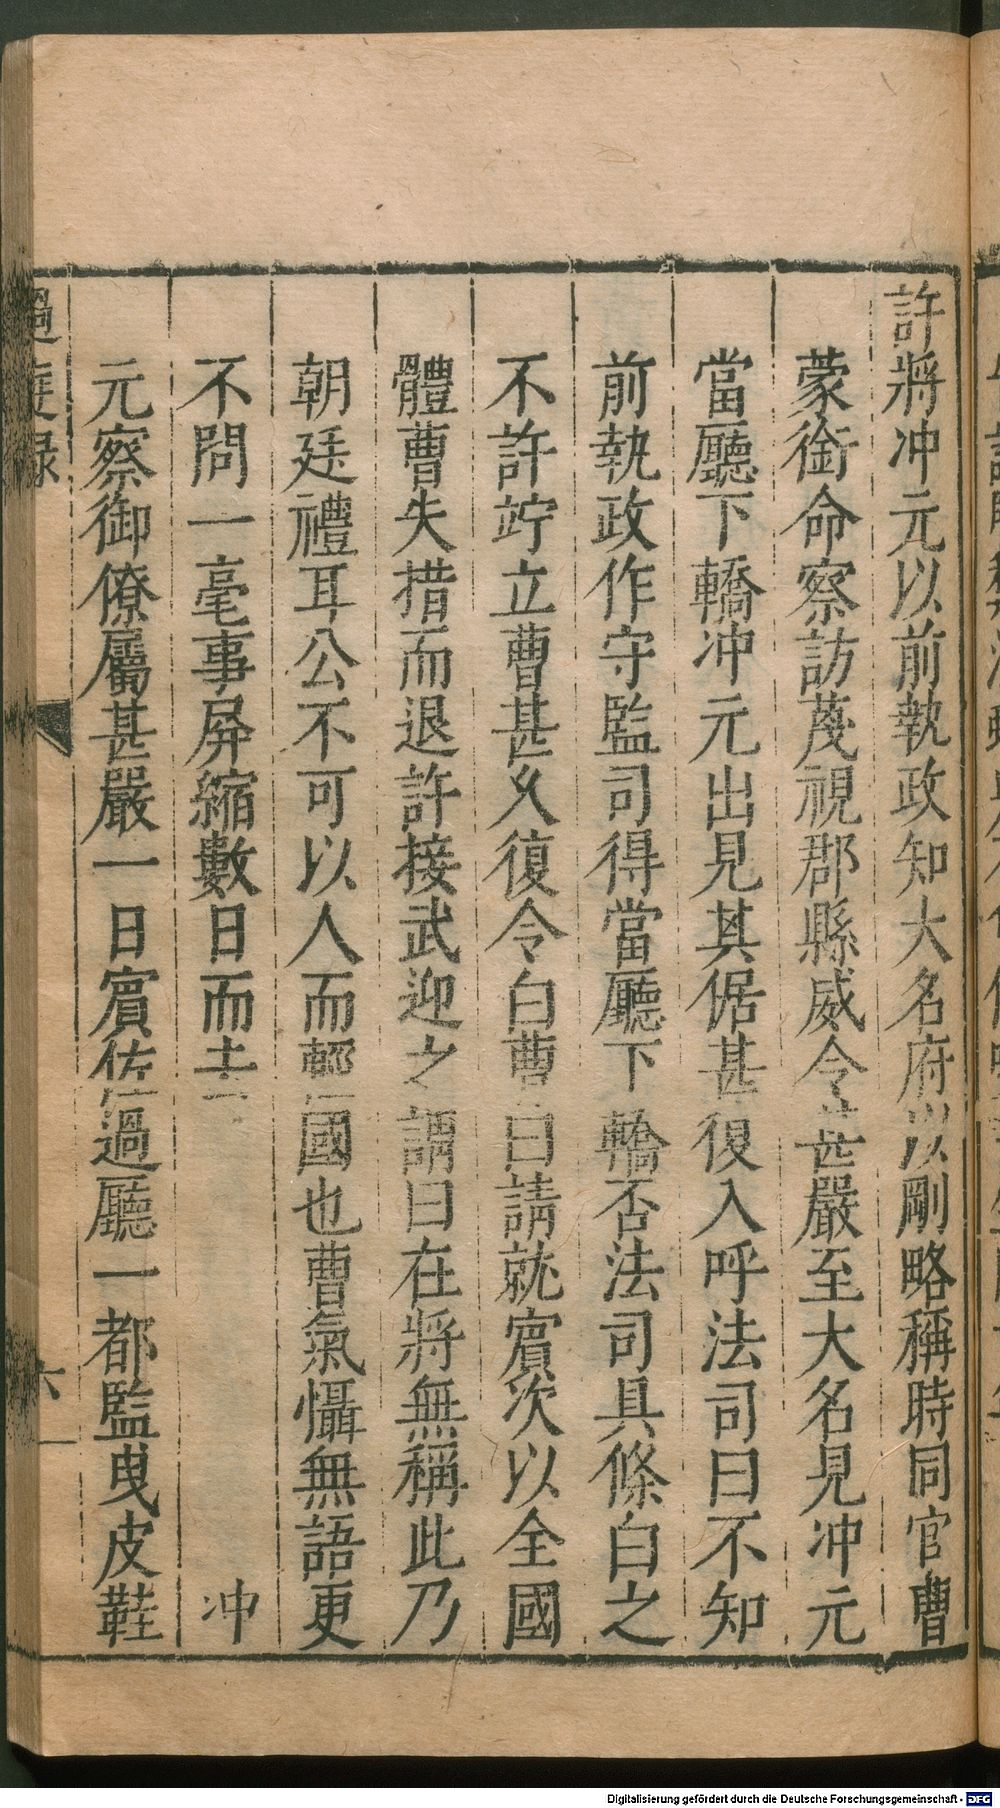 許將冲元以前執政知大名府以剛略稱時同官曹
蒙銜命察訪蔑視郡縣威令甚嚴至大名見冲元
當廳下轎冲元出見其倨甚復入呼法司曰不知
前執政作守監司得當廳下轎否法司具條白之
不許竚立曹甚久復令白曹曰請就賓次以全國
體曹失措而退許接武迎之謂曰在將無稱此乃
朝廷禮耳公不可以人而輕國也曹氣懾無語更
不問一毫事屏縮數日而去 冲
元察御僚屬甚嚴一日賓佐過廳一都監曳皮鞋
過庭録
六
Digitalisierung gefördert durch die Deutsche Forschungsgemeinschaft - DFG